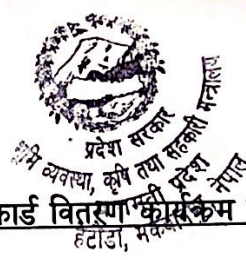 प्रदेश सरकार
भूमि व्यवस्था, कृषि तथा सहकारी मन्त्रालय
प्रदेश
नेपाल
कार्ड वितरण कार्यक्रम
हेटौंडा,